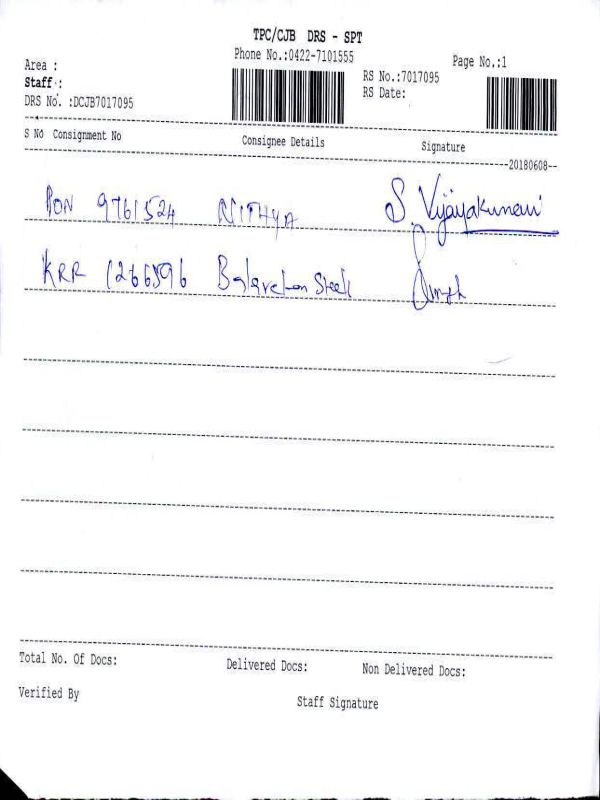 TPC/CJB DRS - SPT
Phone No.:0422-7101555
Page No.:1
Area :
Staff :
DRS No. :DCJB7017095
RS No.:7017095
RS Date:
S No Consignment No Consignee Details Signature
20180608
PON 9761524 NITHYA S. Vijayakumari
KRR 1266596 Steels
Total No. Of Docs: Delivered Docs: Non Delivered Docs:
Verified By Staff Signature